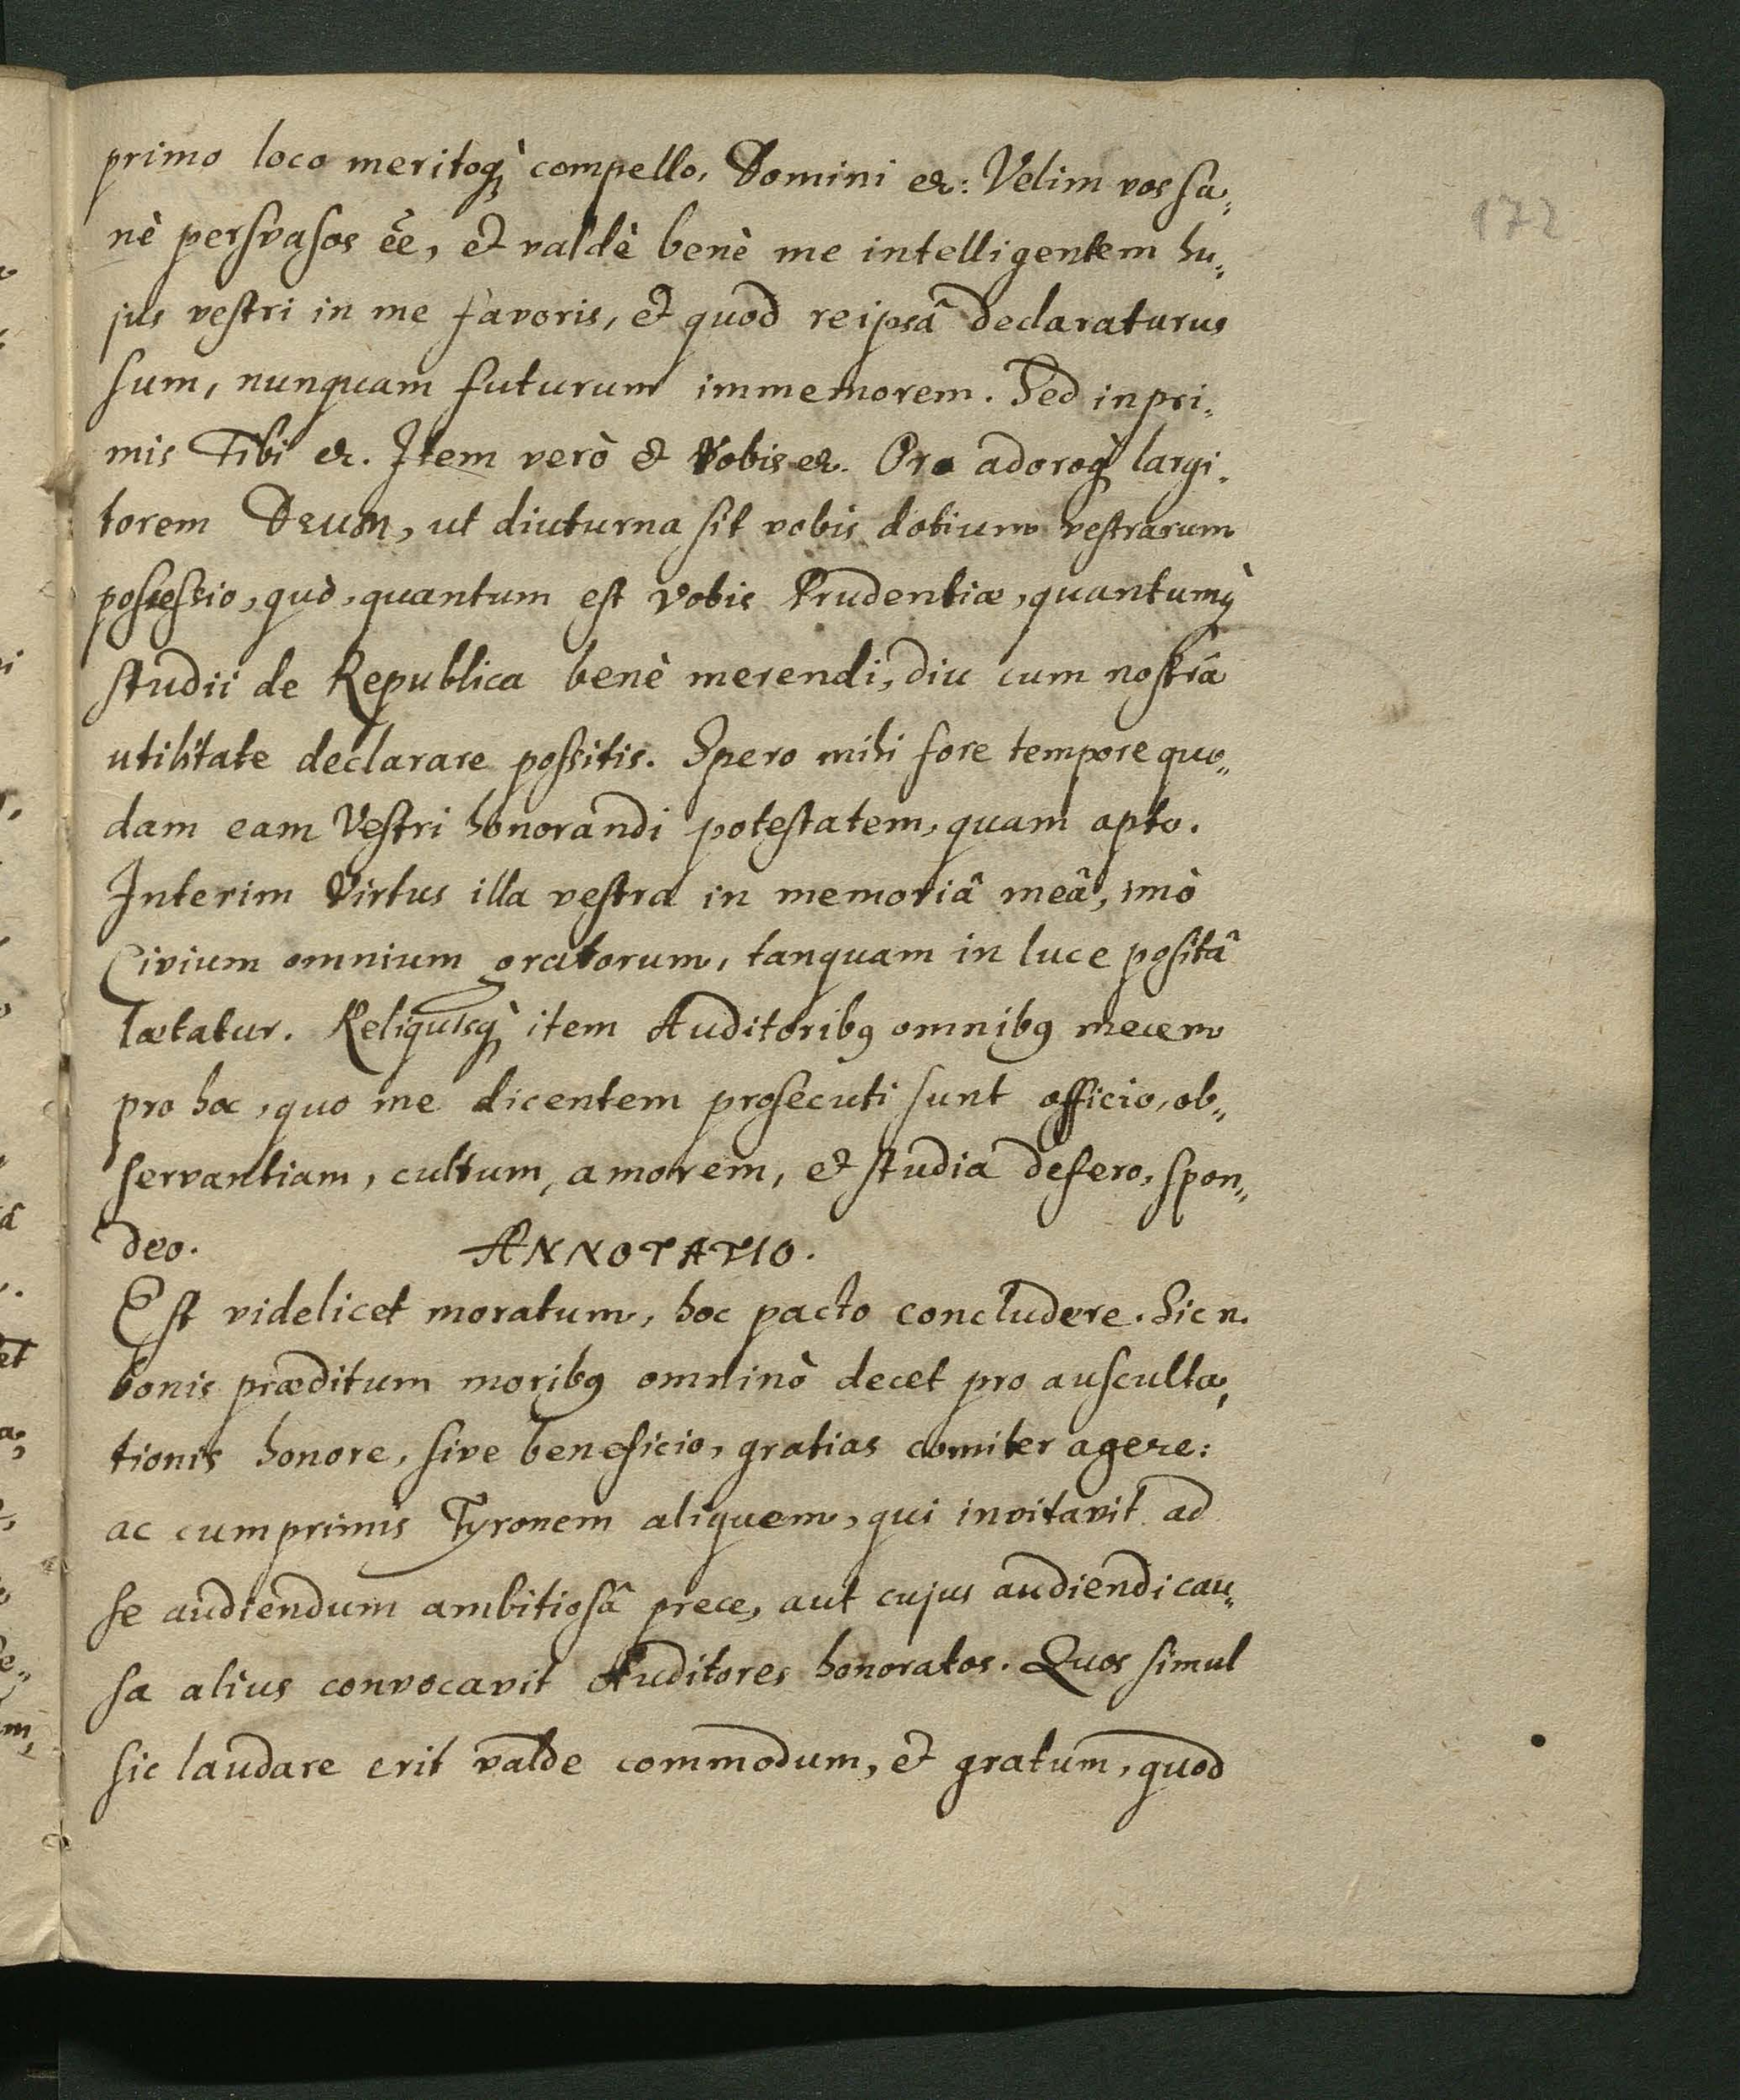 primo loco meritoq̀ compello. Domini etc: Velim vos sa„
nè persvasos ee͂, et valdè benè me intelligentem hu„
jus vestri in me favoris, et quod reipsâ declaraturus
sum, nunquam futurum immemorem. Sed inpri„
mis Tibi etc. Item verò et Vobis etc. Oro adoroq̀ largi„
torem Deum, ut diuturna sit vobis dotium vestrarum
possessio, quò, quantum est Vobis Prudentiæ, quantumq̀
studii de Republica benè merendi, diu cum nostrâ
utilitate declarare possitis. Spero mihi fore tempore quo„
dam eam Vestri honorandi potestatem, quam opto.
Interim Virtus illa vestra in memoriâ meâ, imò
Civium omnium gratorum, tanquam in luce positâ
lætatur. Reliquisq̀ item Auditoribꝰ omnibꝰ mecem
pro hoc, quo me dicentem prosecuti sunt officio, ob„
servantiam, cultum, amorem, et studia defero, spon„
deo. ANNOTATIO.
Est videlicet moratum, hoc pacto concludere. Sic n.
bonis præditum moribꝰ omninò decet pro ausculta„
tionis honore, sive beneficio, gratias comiter agere:
ac cumprimis Tyronem aliquem, qui invitavit ad
se audiendum ambitiosâ prece, aut cujus audiendi cau„
sa alius convocavit Auditores honoratos. Quos simul
sic laudare erit valde commodum, et gratum, quod
172